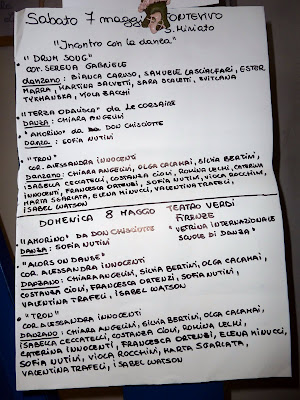 Sabato 7 maggio PONTEVIVO
S. Miniato
"Incontro con la danza"
• "DRUM SONG"
cor. SERENA GABRIELE
danzano: BIANCA CARUSO, SAMUELE LASCIALFARI, ESTER
MARRA, MARTINA SALVETTI, SARA SCALETTI, SVITLANA
TYKHANSKA, VIOLA BACCHI
• "TERZA ODALISCA" da LE CORSAIRE
DANZA: CHIARA ANGELINI
• "AMORINO" da DON CHISCIOTTE
DANZA: SOFIA NUTINI
• "TRON"
COR. ALESSANDRA INNOCENTI
DANZANO: CHIARA ANGELINI, OLGA CACAMAI, SILVIA BERTINI,
ISABELLA CECCATELLI, COSTANZA CIONI, ROMINA LELMI, CATERINA
INNOCENTI, FRANCESCA ORTENZI, SOFIA NUTINI, VIOLA ROCCHINI,
MARTA SGARLATA, ELENA MINUCCI, VALENTINA TRAFELI,
ISABEL WATSON
DOMENICA 8 MAGGIO TEATRO VERDI
FIRENZE
• "AMORINO" DA DON CHISCIOTTE "VETRINA INTERNAZIONALE
DANZA: SOFIA NUTINI SCUOLE DI DANZA"
• "ALORS ON DANSE"
COR. ALESSANDRA INNOCENTI
DANZANO: CHIARA ANGELINI, SILVIA BERTINI, OLGA CACAMAI,
COSTANZA CIONI, FRANCESCA ORTENZI, SOFIA NUTINI,
VALENTINA TRAFELI, ISABEL WATSON
• "TRON"
COR. ALESSANDRA INNOCENTI
DANZANO: CHIARA ANGELINI, SILVIA BERTINI, OLGA CACAMAI,
ISABELLA CECCATELLI, COSTANZA CIONI, ROMINA LELMI,
CATERINA INNOCENTI, FRANCESCA ORTENZI, ELENA MINUCCI,
SOFIA NUTINI, VIOLA ROCCHINI, MARTA SGARLATA,
VALENTINA TRAFELI, ISABEL WATSON